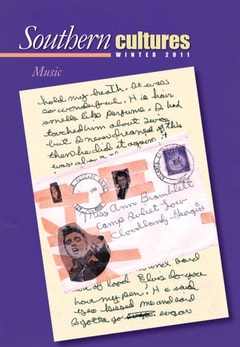 Southern cultures
WINTER 2011
Music
hold my breath. It was
so wonderful. His hair
smells like perfume. I had
but I never dreamed of this
then he did it again!!
Miss Ann Bramblett
Camp Juliet Low
Cloudland, Georgia
of food Elvis do you
hour my pen? He said
yes kissed me and said
I gotta go sugar